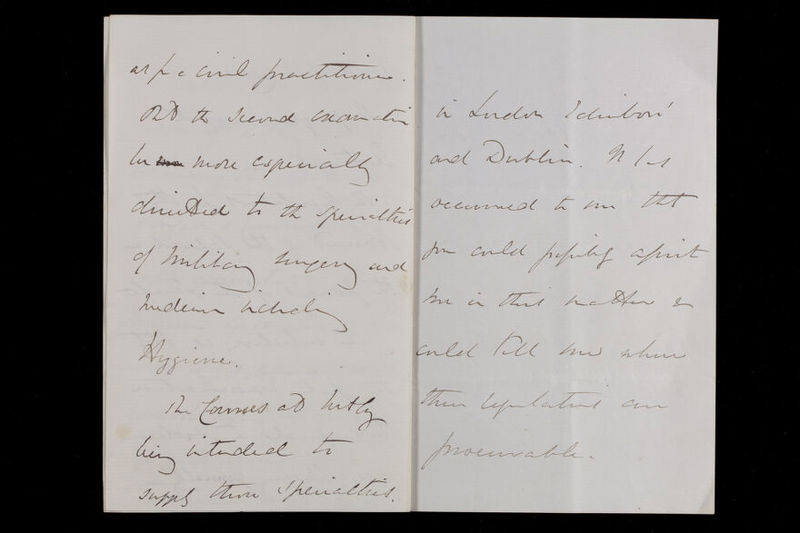 as for a civil practitioner.
But the second examination
be more especially
directed to the specialties
of military surgery and
medicine including
Hygiene.
The Courses at Netley
being intended to
supply these specialties.
in London Edinboro'
and Dublin. It has
occurred to me that
you could possibly assist
me in this matter &
could tell me where
these regulations are
procurable.